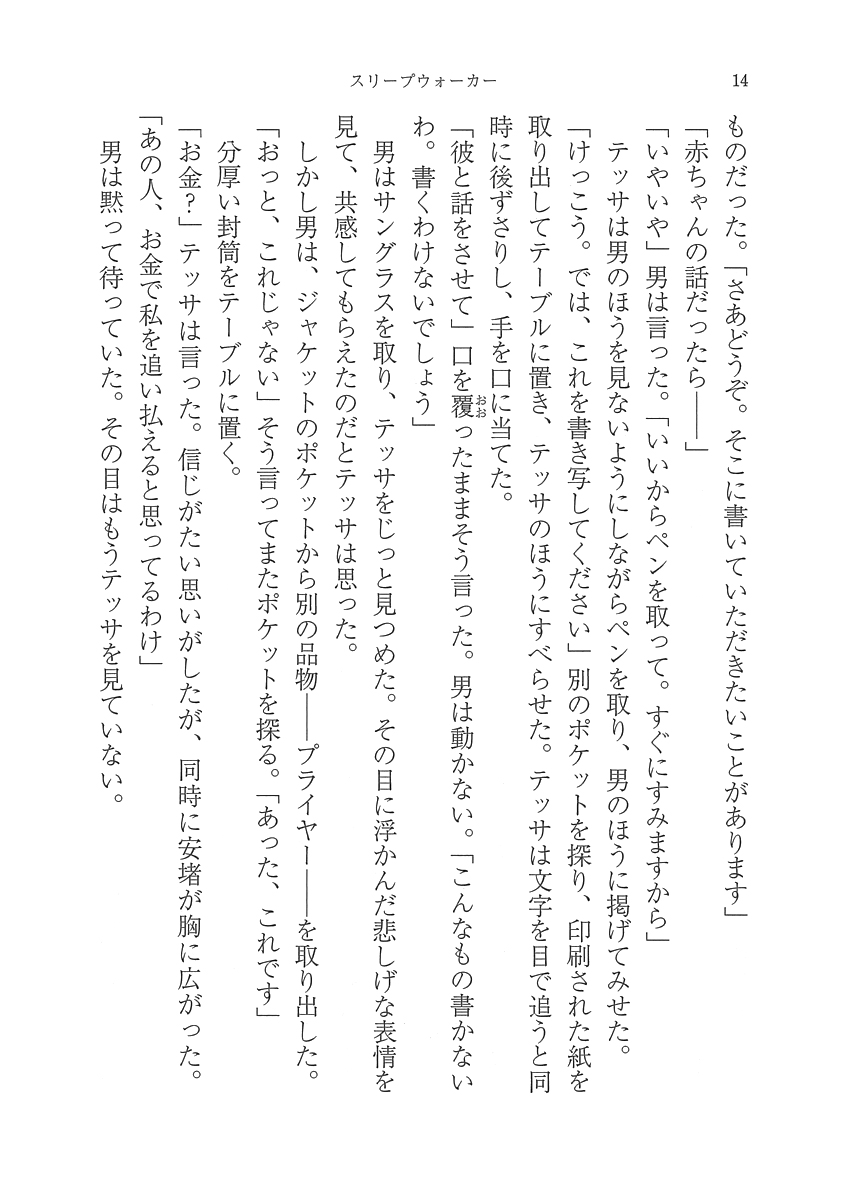 スリープウォーカー
14
ものだった。「さあどうぞ。そこに書いていただきたいことがあります」
「赤ちゃんの話だったら――」
「いやいや」男は言った。「いいからペンを取って。すぐにすみますから」
テッサは男のほうを見ないようにしながらペンを取り、男のほうに掲げてみせた。
「けっこう。では、これを書き写してください」別のポケットを探り、印刷された紙を
取り出してテーブルに置き、テッサのほうにすべらせた。テッサは文字を目で追うと同
時に後ずさりし、手を口に当てた。
「彼と話をさせて」口を覆ったままそう言った。男は動かない。「こんなもの書かない
おお
わ。書くわけないでしょう」
男はサングラスを取り、テッサをじっと見つめた。その目に浮かんだ悲しげな表情を
見て、共感してもらえたのだとテッサは思った。
しかし男は、ジャケットのポケットから別の品物――プライヤー――を取り出した。
「おっと、これじゃない」そう言ってまたポケットを探る。「あった、これです」
分厚い封筒をテーブルに置く。
「お金？」テッサは言った。信じがたい思いがしたが、同時に安堵が胸に広がった。
「あの人、お金で私を追い払えると思ってるわけ」
男は黙って待っていた。その目はもうテッサを見ていない。